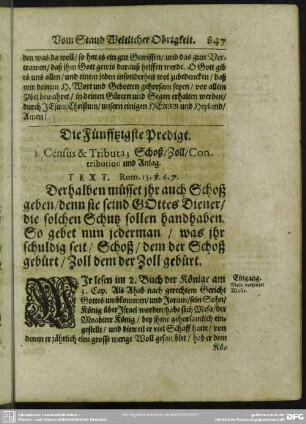 Vom Stand Weltlicher Obrigkeit. 847
den was da woll/ so hat es ein gut Gewissen/ und das gute Ver-
trawen/ daß ihm Gott gewis darauß helffen werde. O Gott gib
es uns allen/ und einem jeden insonderheit wol zubedencken/ daß
wir deinem H. Wort und Gebotten gehorsam seyen/ vor allem
Ubel bewahret/ in deinen Güten und Segen erhalten werden/
durch JEsum Christum/ unsern einigen HErrn und Heyland/
Amen!
Die Fünfftzigste Predigt.
3. Census & Tributa; Schoß/ Zoll/ Con-
tribution und Anlag.
TEXT. Rom. 13. v. 6. 7.
Derhalben müsset ihr auch Schoß
geben/ denn sie seind GOttes Diener/
die solchen Schutz sollen handhaben.
So gebet nun jederman/ was ihr
schuldig seit/ Schoß/ dem der Schoß
gebürt/ Zoll dem der Zoll gebürt.
WIr lesen im 2. Buch der Könige am
3. Cap. Als Ahab nach gerechtem Gericht
Gottes umbkommen/ und Joram/ sein Sohn/
König über Israel worden/ habe sich Mesa/ der
Moabiter König/ bey ihme gehorsamlich ein-
gestellt/ und die weil er viel Schaff hatte/ von
denen er jährlich eine grosse menge Woll gesamblet/ hab er dem
Eingang.
Kö-